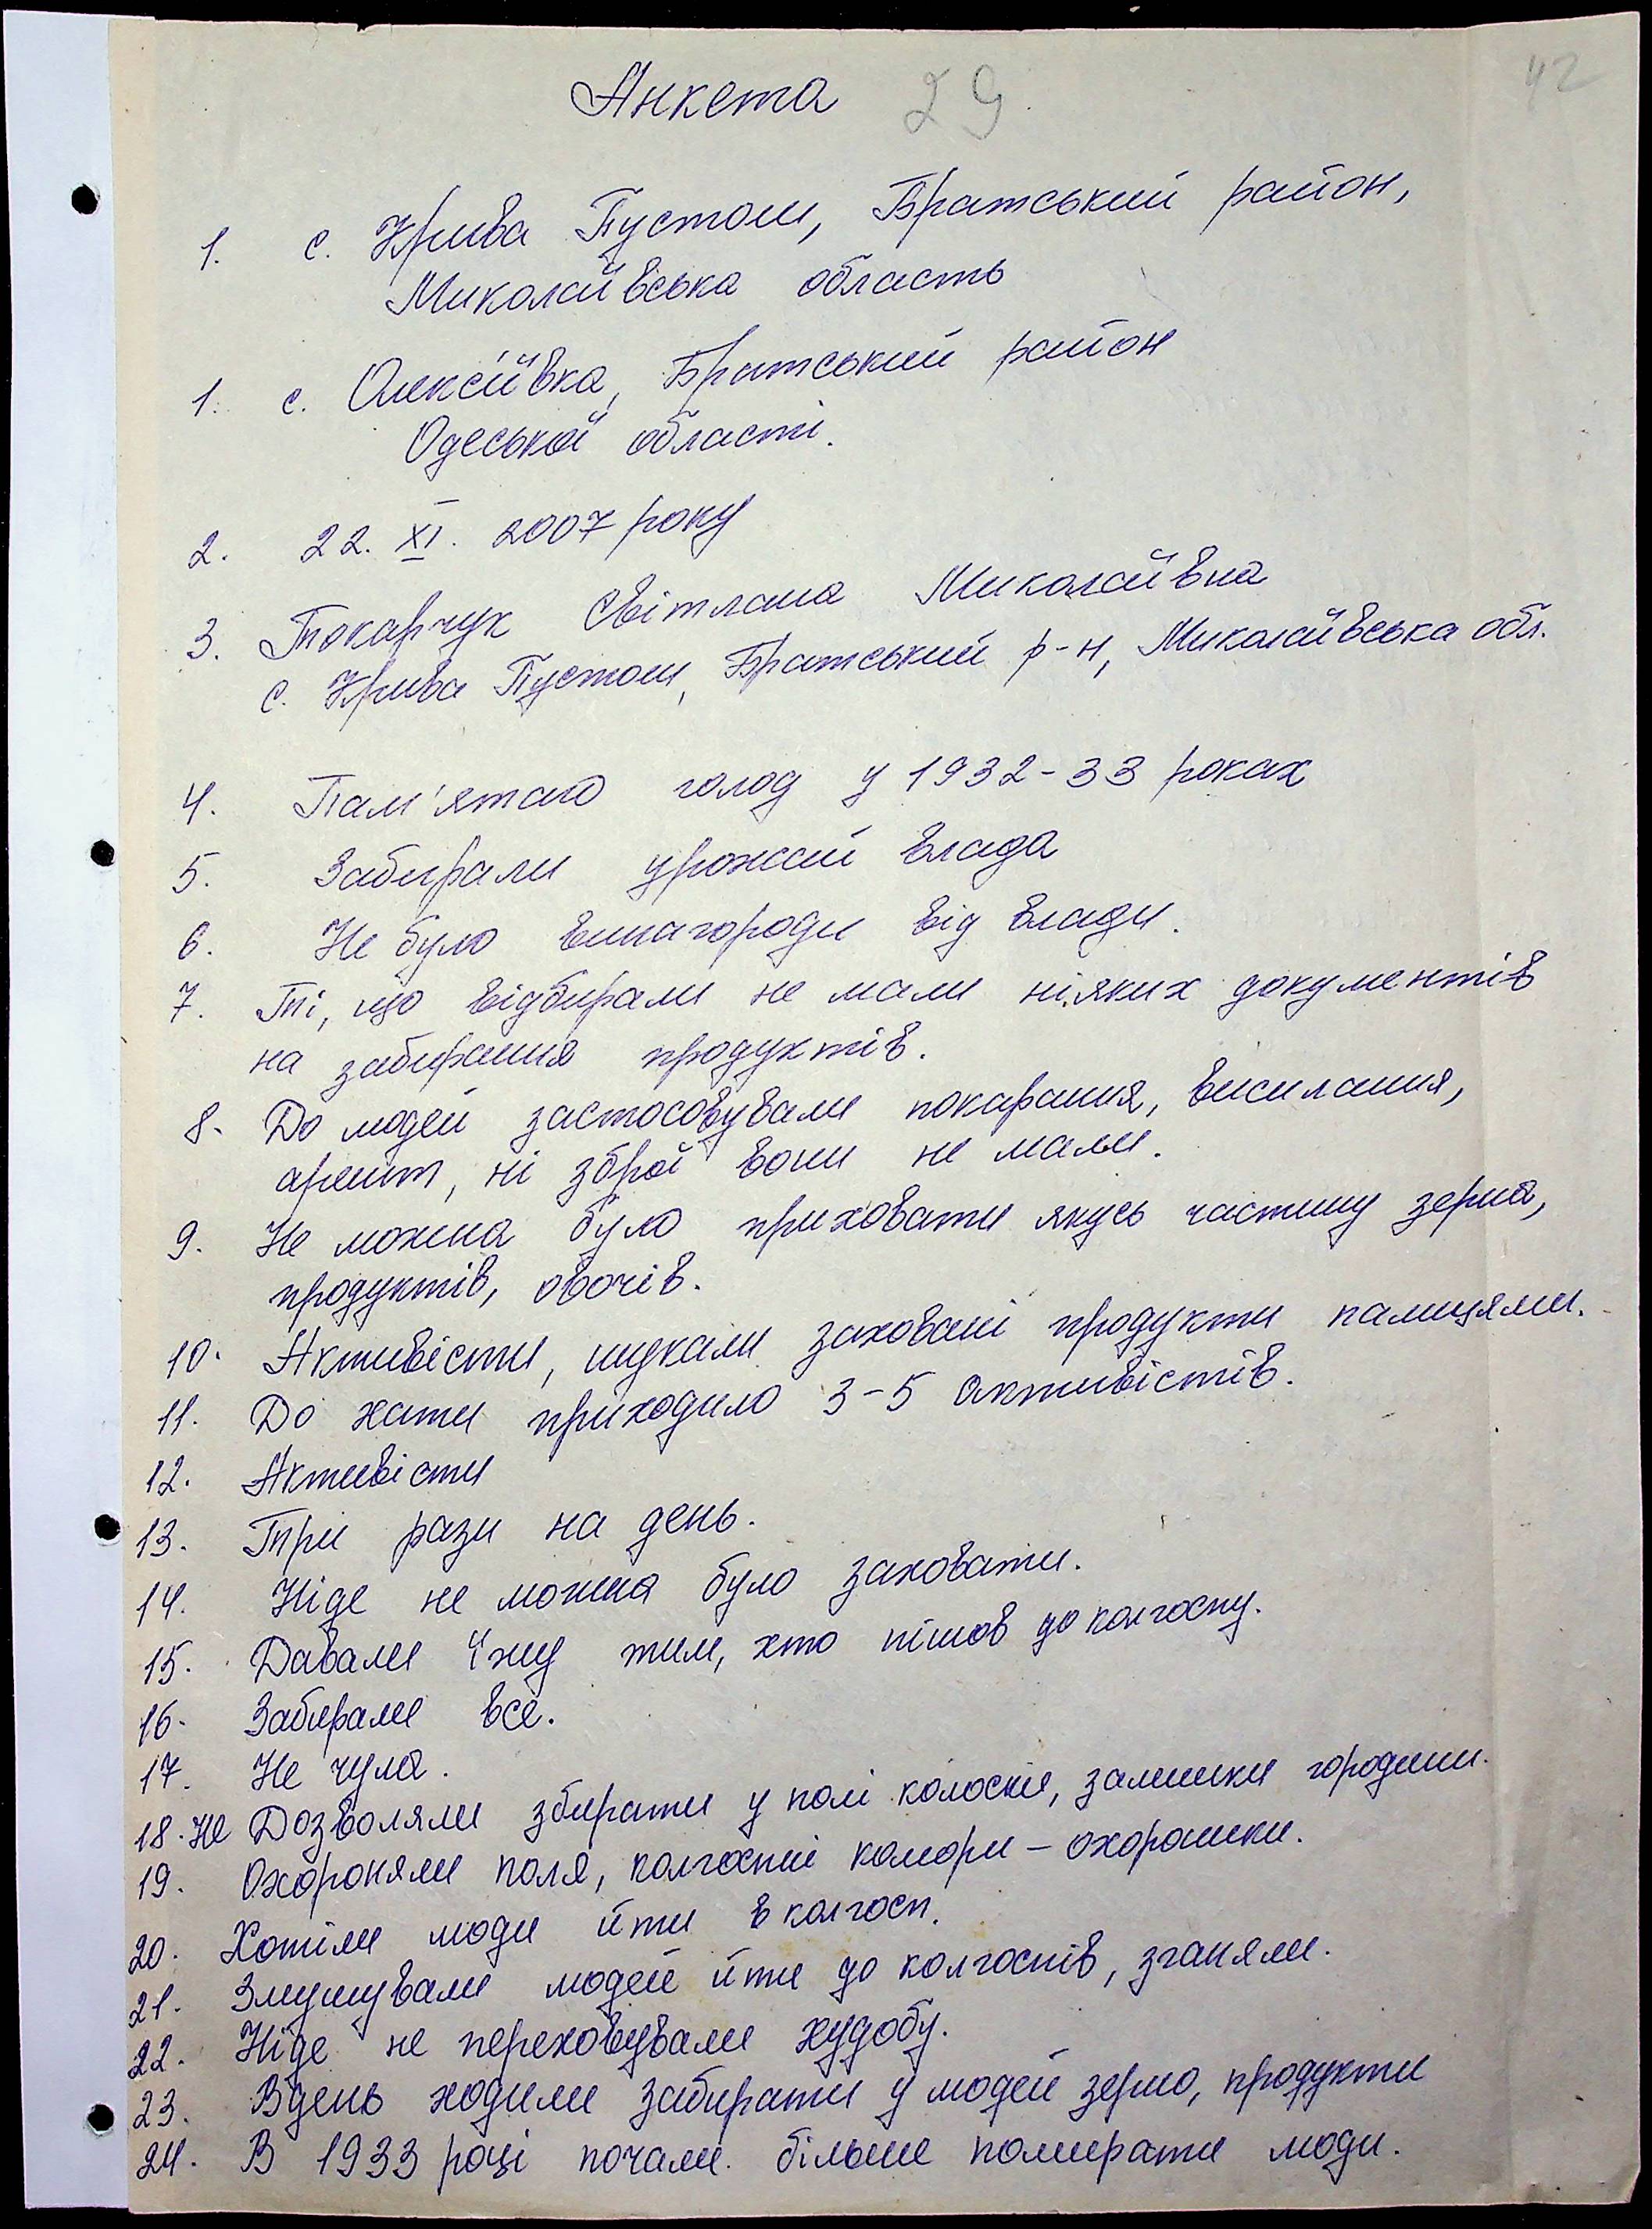 Анкета 29 42
1. с. Крива Пустош, Братський район,
Миколаївська область
1. с. Олексіївка, Братський район
Одеської області.
2. 22. XI. 2007 року
3. Токарчук Світлана Миколаївна
с. Крива Пустош, Братський р-н, Миколаївська обл.
4. Пам'ятаю голод у 1932-33 роках
5. Забирали урожай влада
6. Не було винагороди від влади.
7. Ті, що відбирали не мали ніяких документів
на забирання продуктів.
8. До людей застосовували покарання, висилання,
арешт, ні зброї вони не мали.
9. Не можна було приховати якусь частину зерна,
продуктів, овочів.
10. Активісти, шукали заховані продукти палицями.
11. До хати приходило 3-5 активістів.
12. Активісти
13. Три рази на день.
14. Ніде не можна було заховати.
15. Давали їжу тим, хто пішов до колгоспу.
16. Забирали все.
17. Не чула.
18. Не Дозволяли збирати у полі колоски, залишки городини.
19. Охороняли поля, колгоспні комори - охоронники.
20. Хотіли люди йти в колгосп.
21. Змушували людей йти до колгоспів, зганяли.
22. Ніде не переховували худобу.
23. Вдень ходили забирати у людей зерно, продукти
24. В 1933 році почали більше помирати люди.